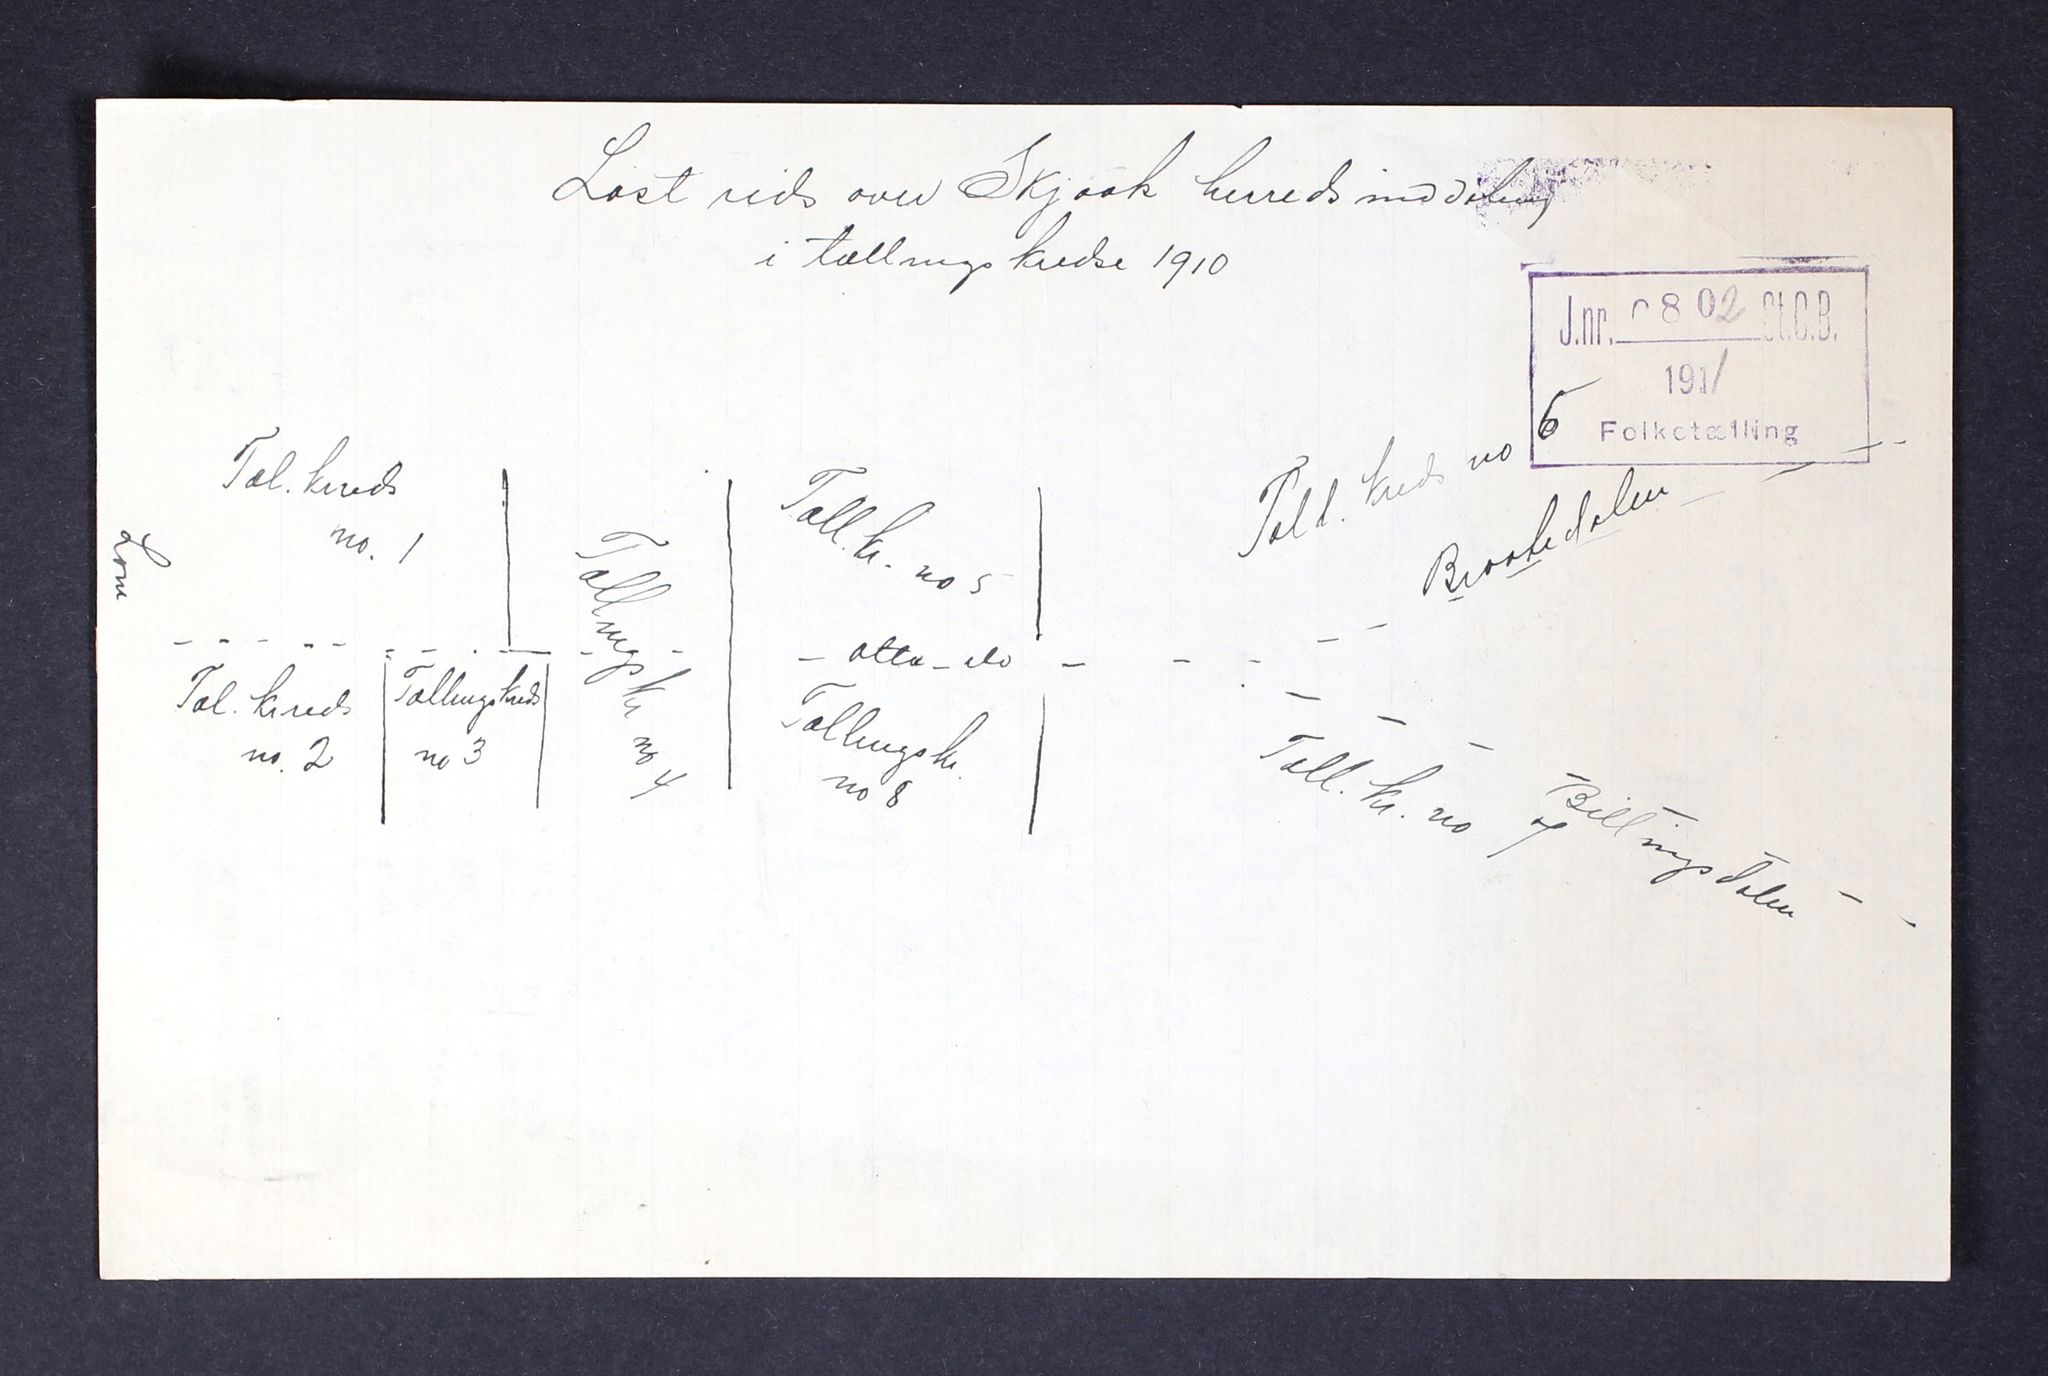 Løst rids over Skjaak herreds inddeling
i tællingskredse 1910
J.nr. 0802 St.C.B.
1911
Folketælling
Tæl. kreds
no. 1
Lom
Tæll. kr. no 5
Tæll. kreds no 6
Braatedalen
Tællingskr no 4
Otta elv
Tæl. kreds
no. 2
Tællingskreds
no 3
Tællingskr.
no 8
Tæll. kr. no 7
Billingsdalen